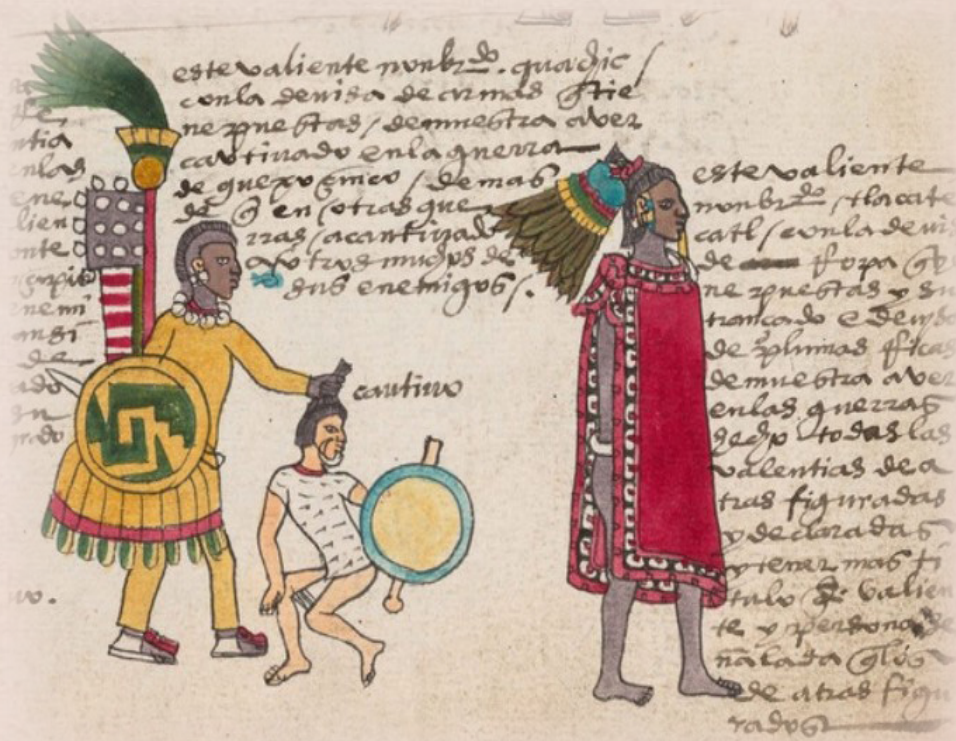 este valiente nonbrado. quachic
con la devisa de armas q̃ tie
ne puestas / demuestra aver
cautivado en la guerra
de guexoçinco / demas
de q̃ en otras gue
rras / a cautivado
a otros muchos de
sus enemigos /.
cautivo
este valiente
nonbrado / tlacate
catl / con la devis
de ropa q̃ tie
ne puestas y su
trançado e devisa
de plumas ricas
demuestra aver
en las guerras
hecho todas las
valentias de a
tras figuradas
y declaradas
y tener mas ti
tulo de valien
te y persona se
ñalada q̃ los
de atras figu
rados